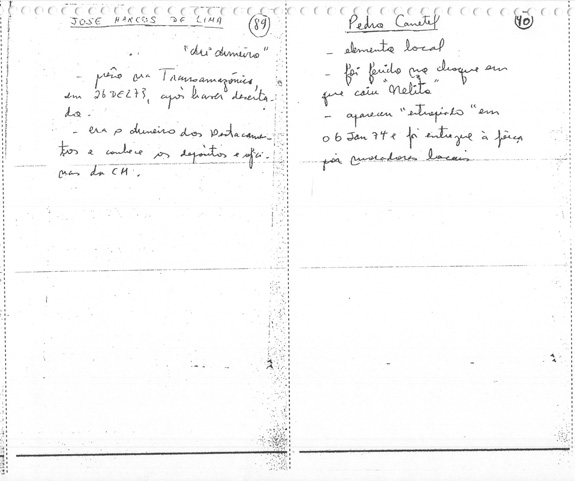 JOSE MARCOS DE LIMA 89
"Zé Armeiro"
- prêso na Transamazônica,
em 26 DEZ 73, após haver deserta-
do.
- era o armeiro dos Destacamen-
tos e conhece os depósitos e ofici-
nas da CM.
Pedro Caretel 90
- elemento local
- foi ferido no choque em
que caiu "Nelito"
- apareceu em
06 Jan 74 e foi entregue à fôrça
por moradores locais